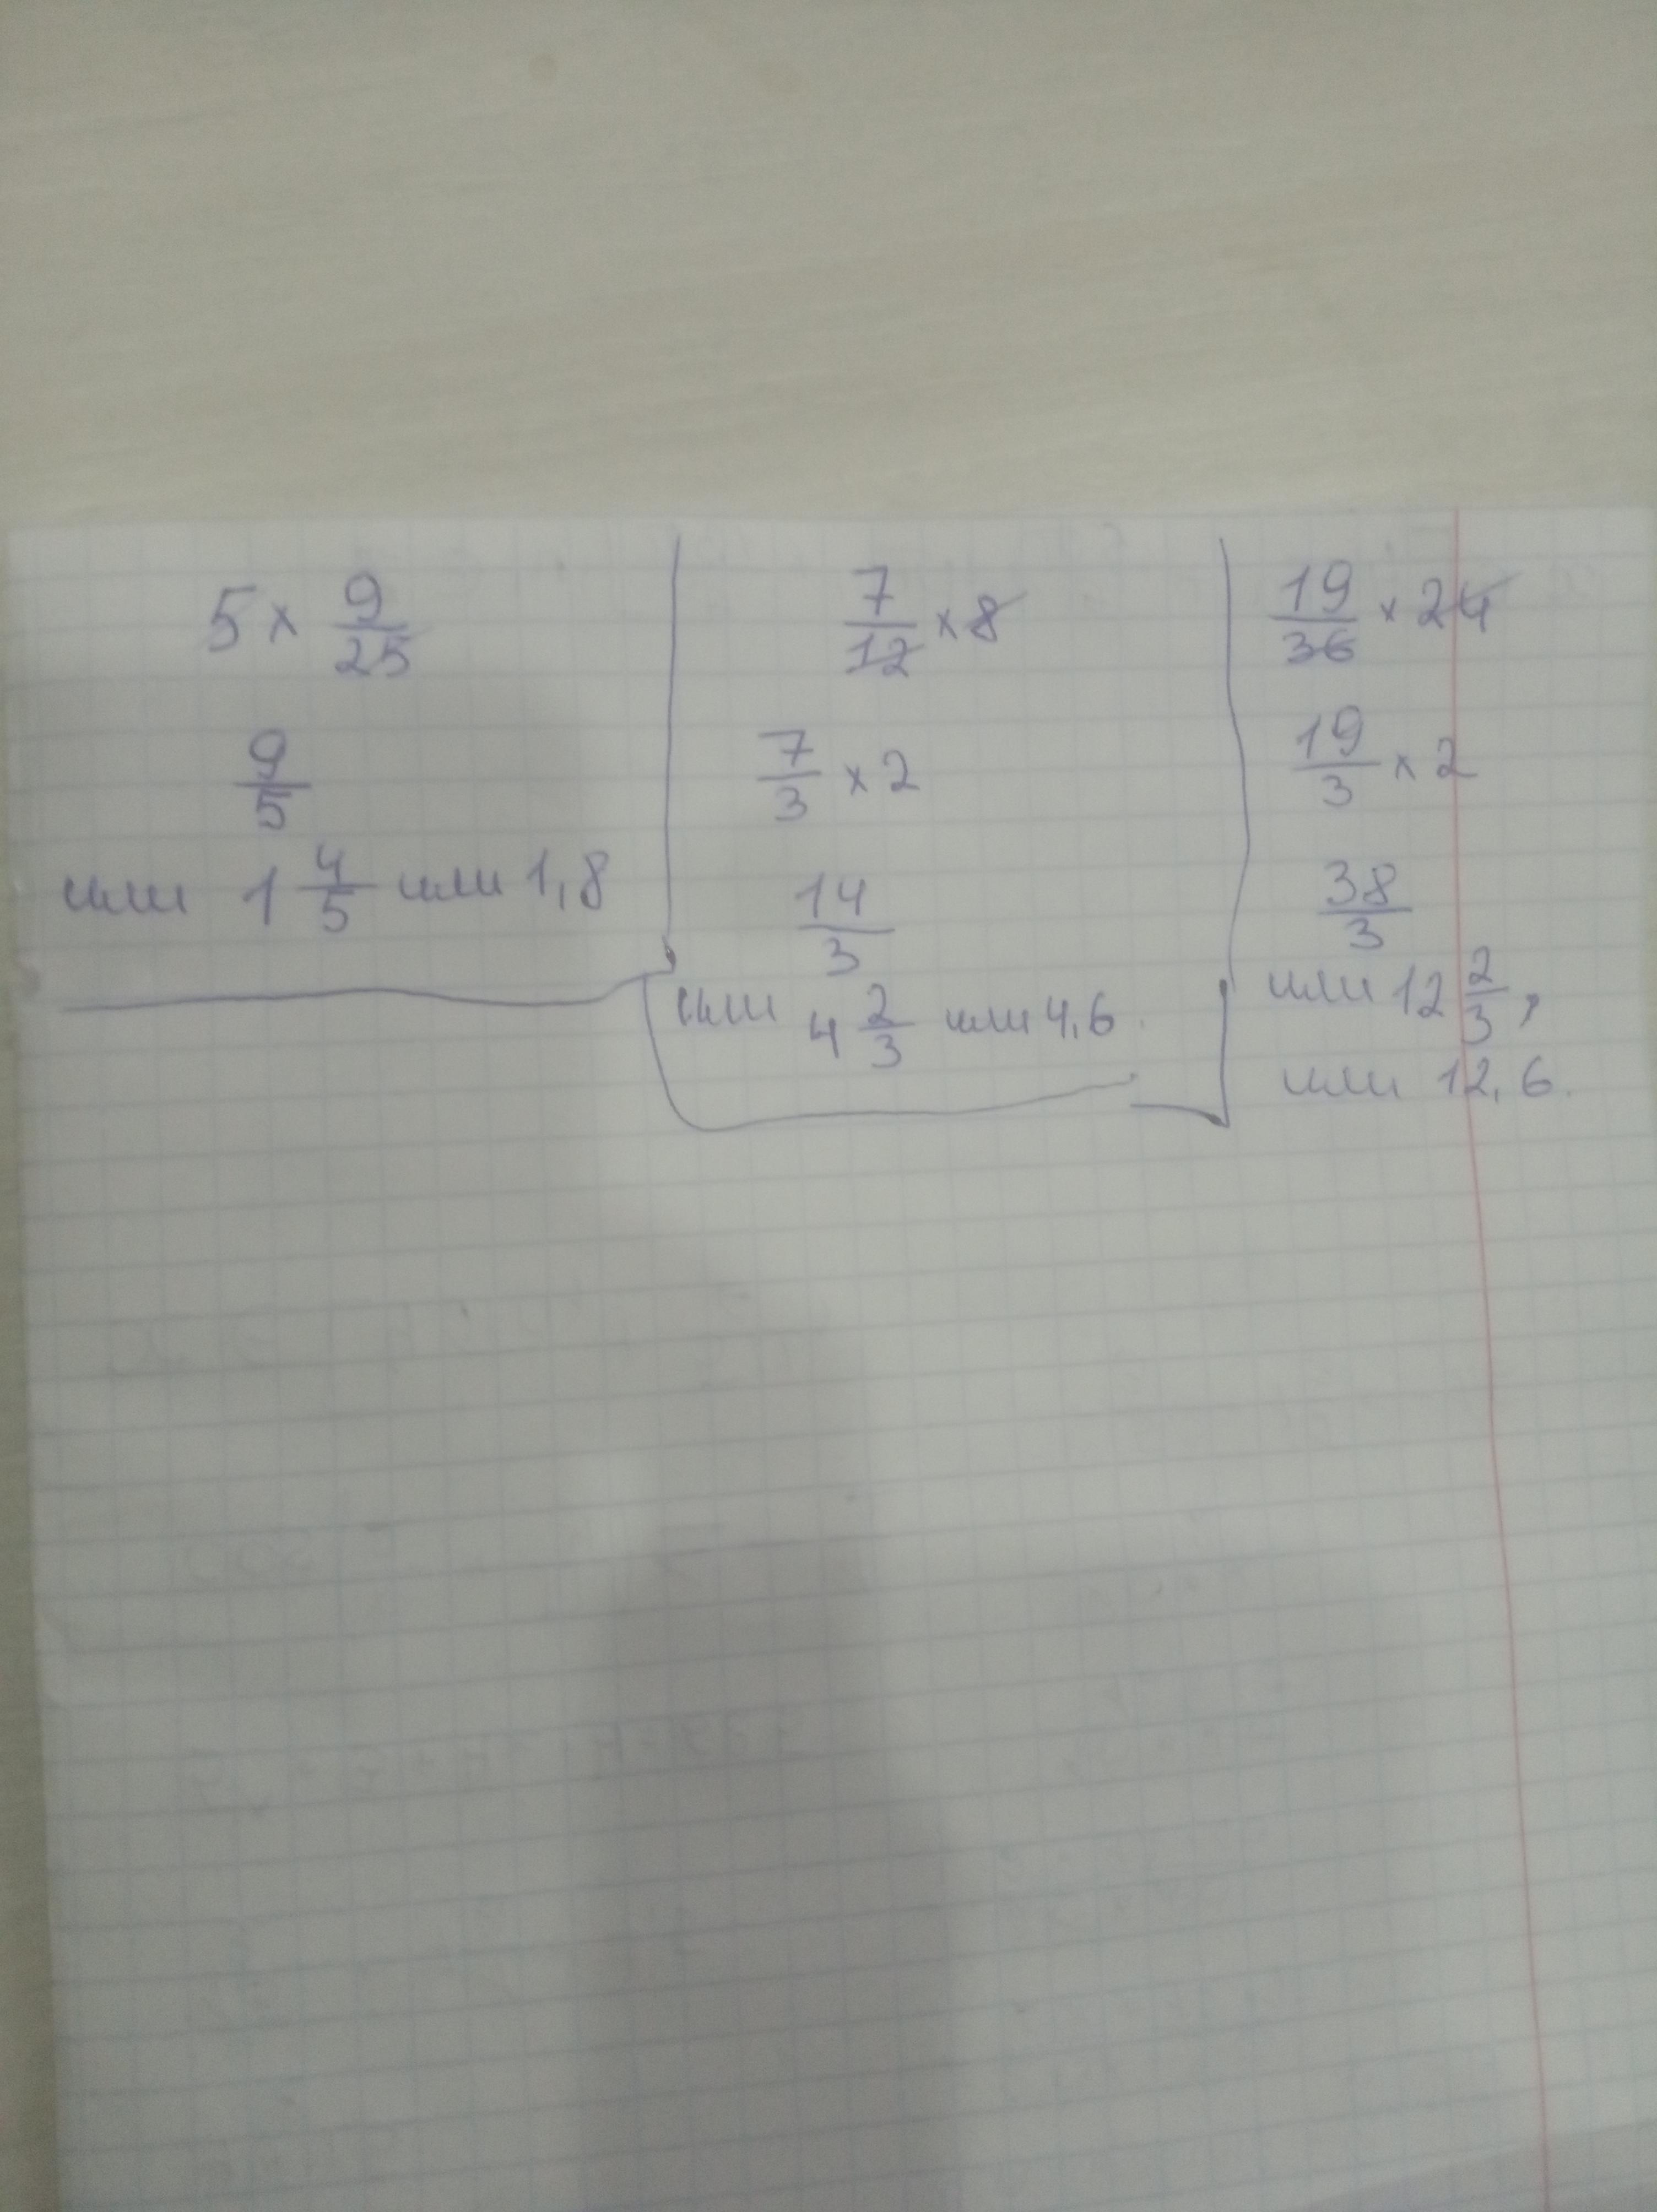 5 × 9/25
9/5
или 1 4/5 или 1,8
7/12 × 8
7/3 × 2
14/3
или 4 2/3 или 4,6.
19/36 × 24
19/3 × 2
38/3
или 12 2/3,
или 12,6.